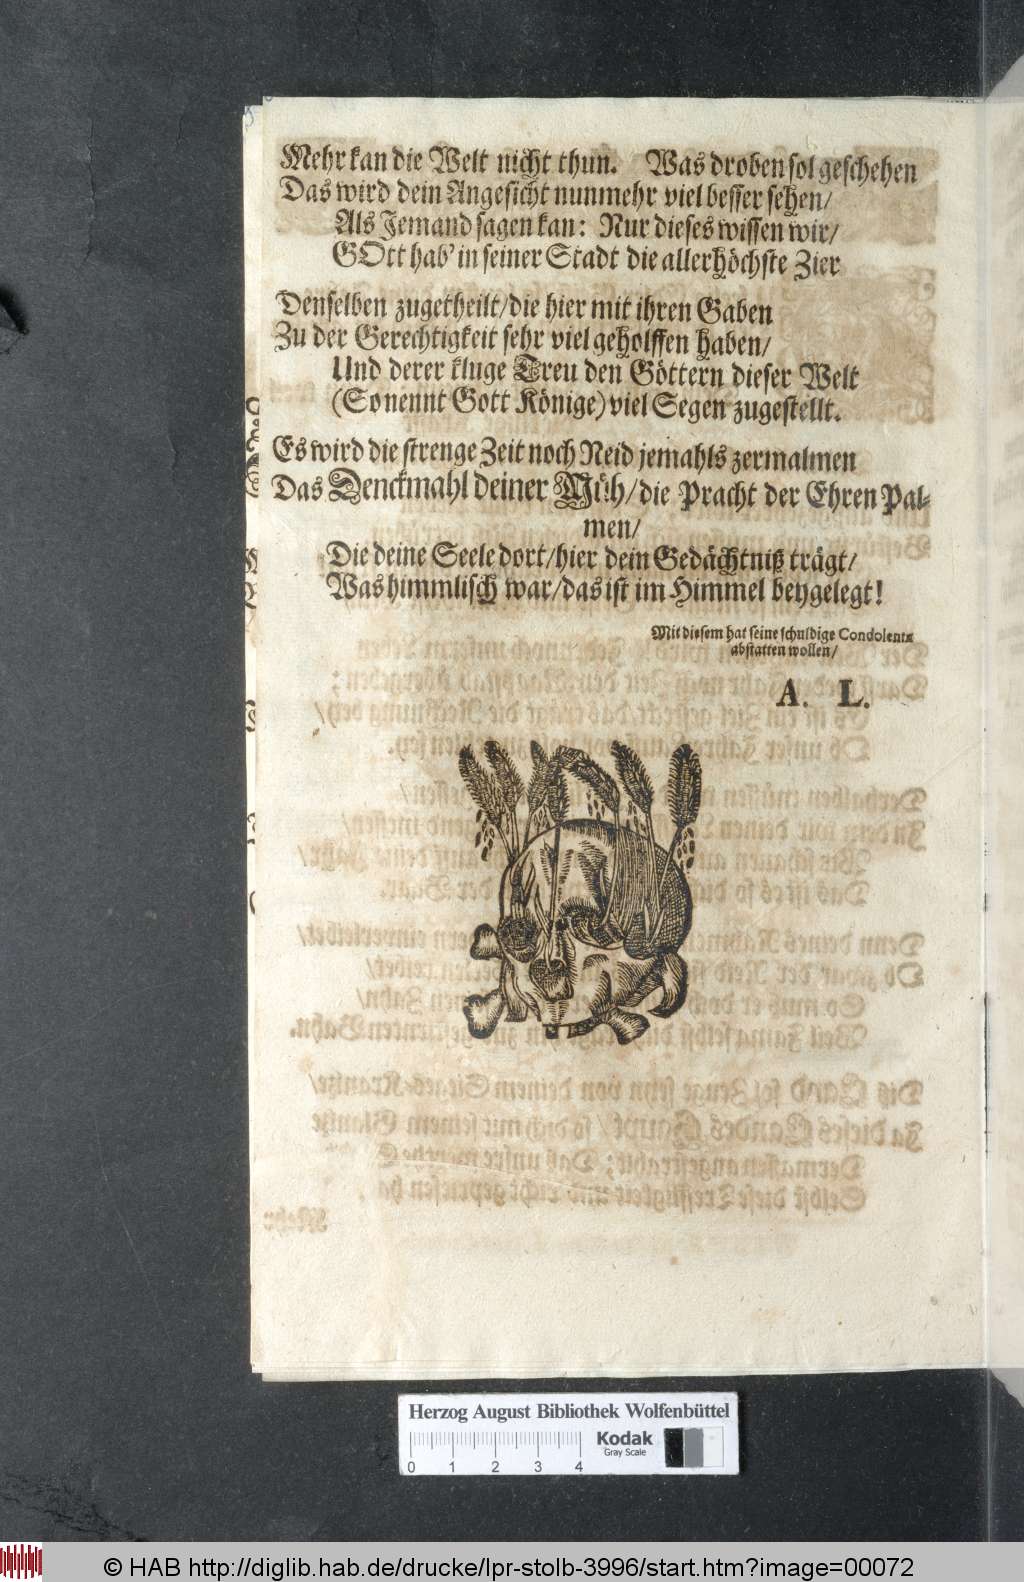 Mehr kan die Welt nicht thun. Was droben sol geschehen
Das wird dein Angesicht nunmehr viel besser sehen/
Als Jemand sagen kan: Nur dieses wissen wir/
GOtt hab' in seiner Stadt die allerhöchste Zier
Denselben zugetheilt/die hier mit ihren Gaben
Zu der Gerechtigkeit sehr viel geholffen haben/
Und derer kluge Treu den Göttern dieser Welt
(So nennt Gott Könige) viel Segen zugestellt.
Es wird die strenge Zeit noch Neid jemahls zermalmen
Das Denckmahl deiner Müh/die Pracht der Ehren Pal-
men/
Die deine Seele dort/hier dein Gedächtniß trägt/
Was himmlisch war/das ist im Himmel beygelegt!
Mit diesem hat seine schuldige Condolentz
abstatten wollen/
A. L.
Herzog August Bibliothek Wolfenbüttel
Kodak
Gray Scale
0 1 2 3 4
© HAB http://diglib.hab.de/drucke/lpr-stolb-3996/start.htm?image=00072